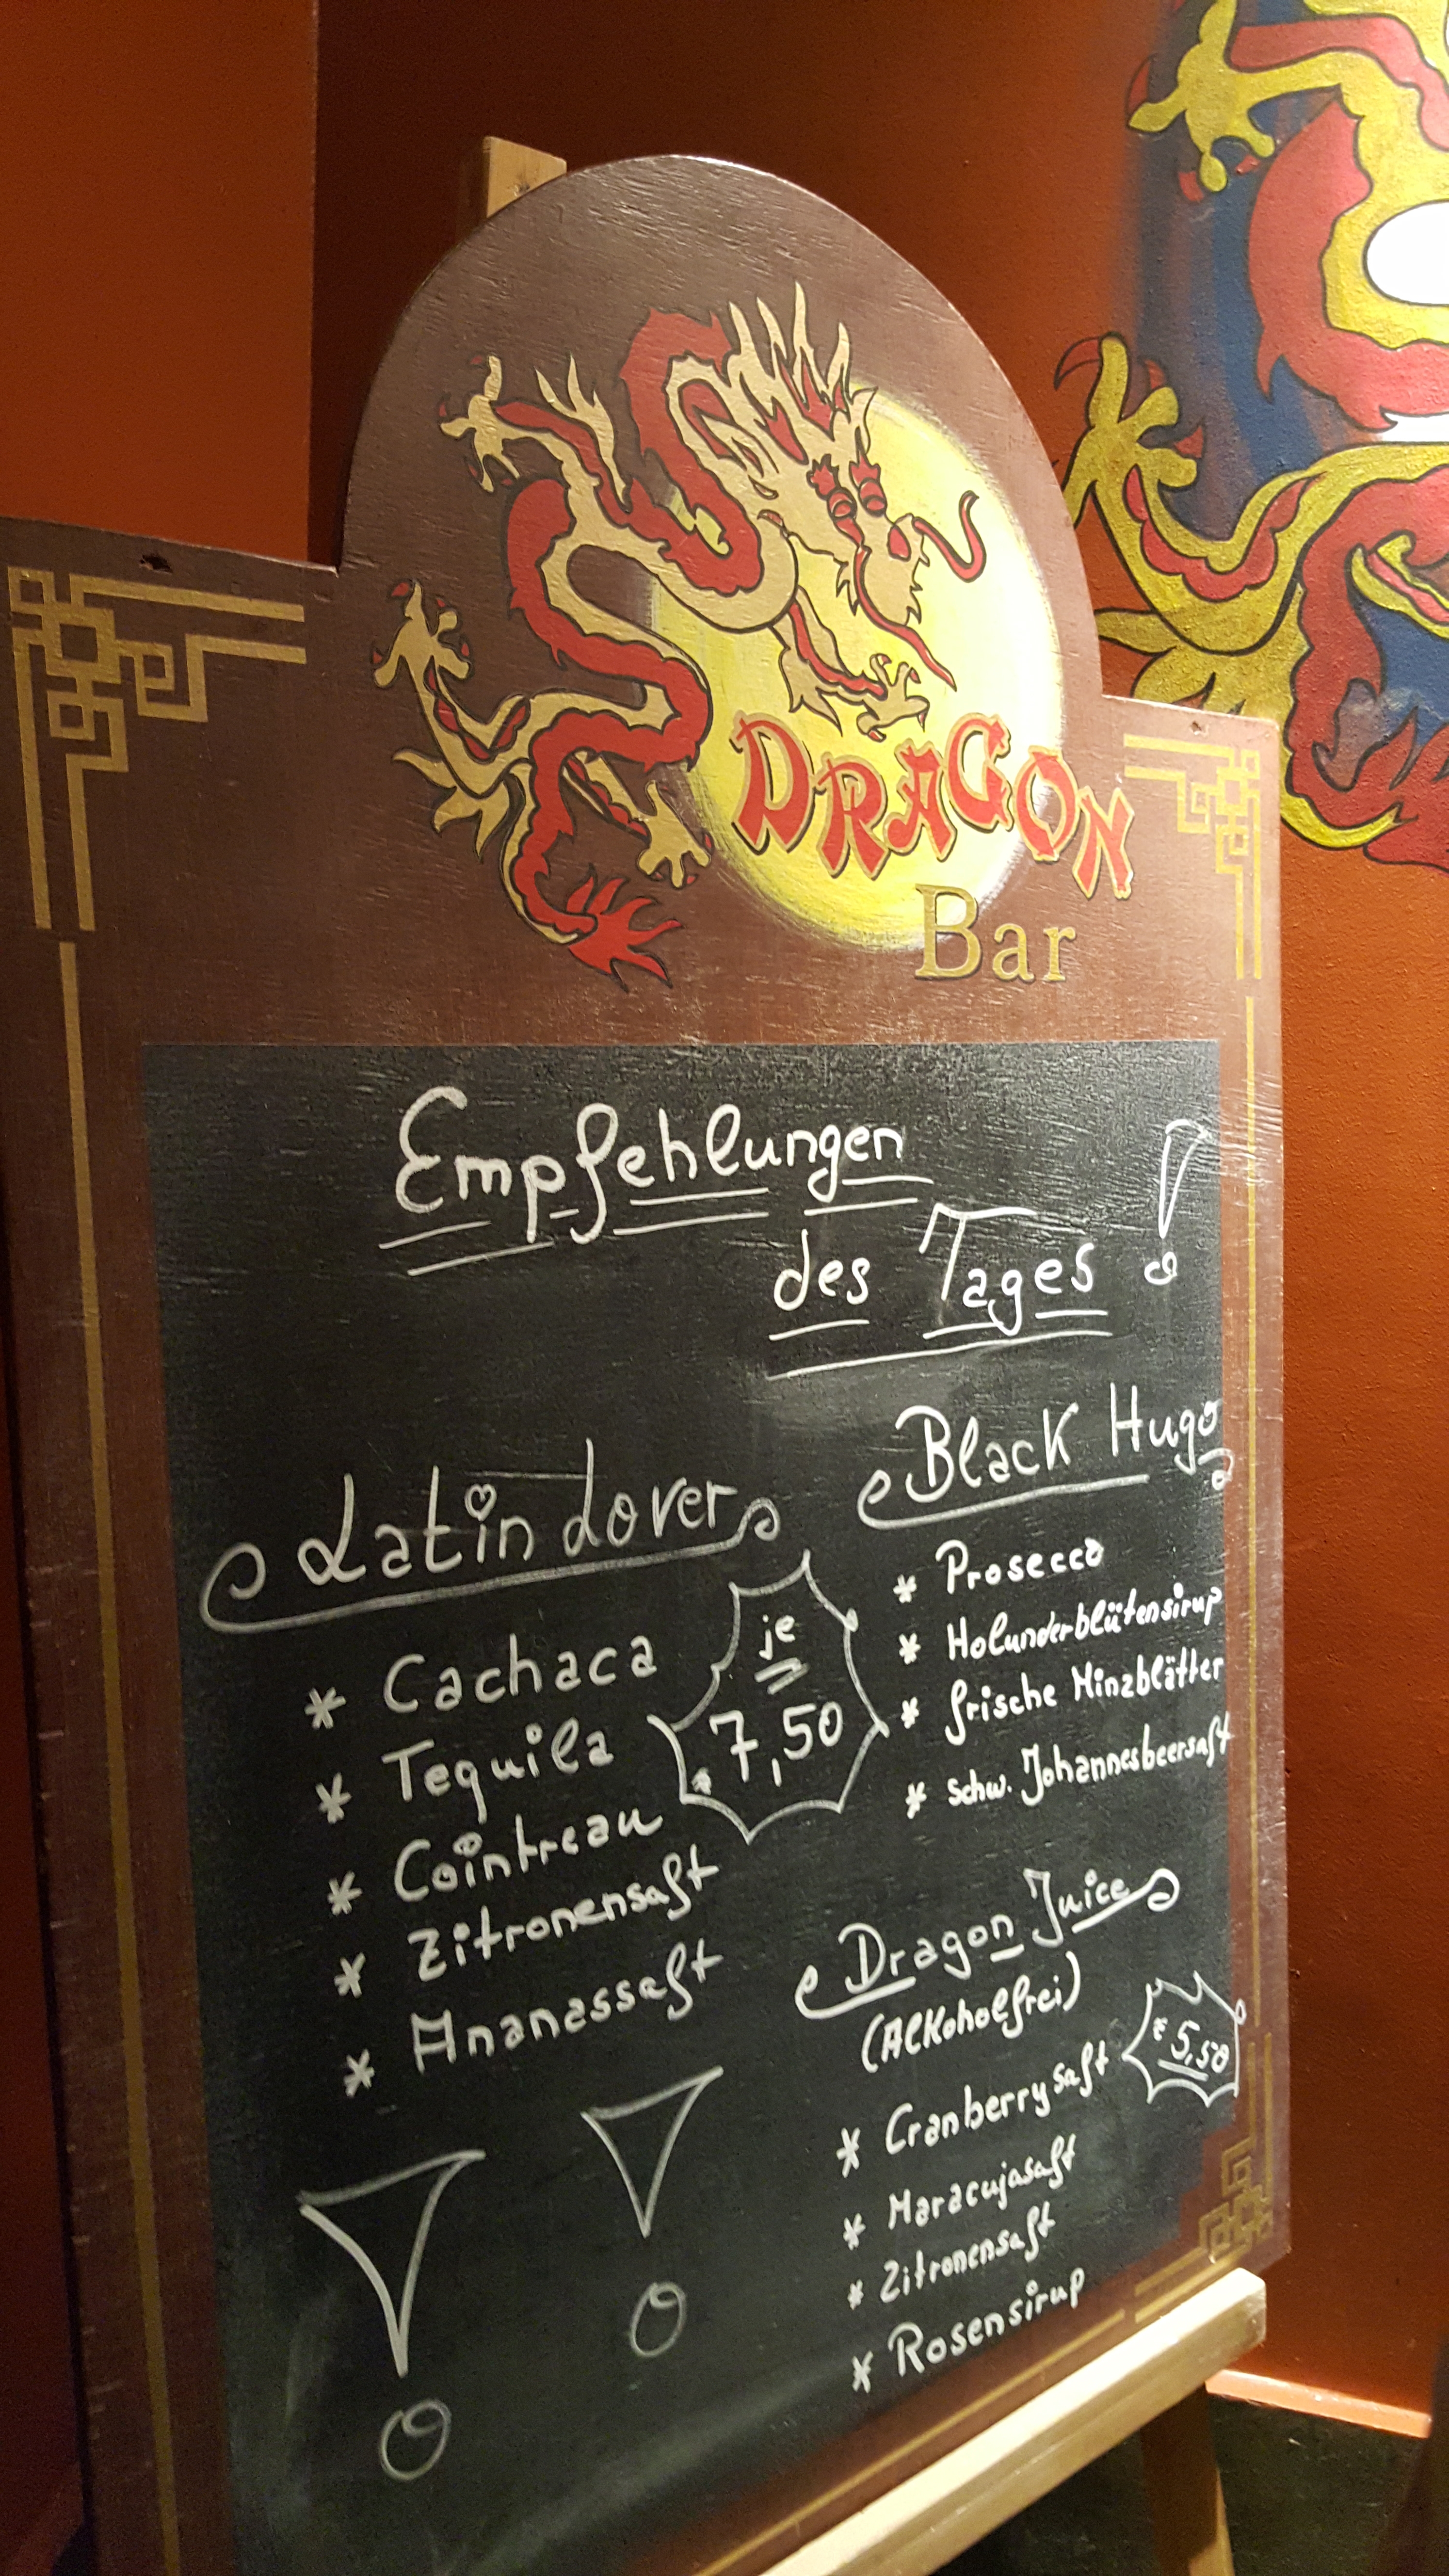 DRAGON
Bar
Empfehlungen
des Tages !
Latin Lover
* Cachaca
* Tequila
* Cointreau
* Zitronensaft
* Ananassaft
je
7,50
Black Hugo
* Prosecco
* Holunderblütensirup
* frische Minzblätter
* Schw. Johannesbeersaft
Dragon Juice
(Alkoholfrei)
€ 5,50
* Cranberrysaft
* Maracujasaft
* Zitronensaft
* Rosensirup
! !